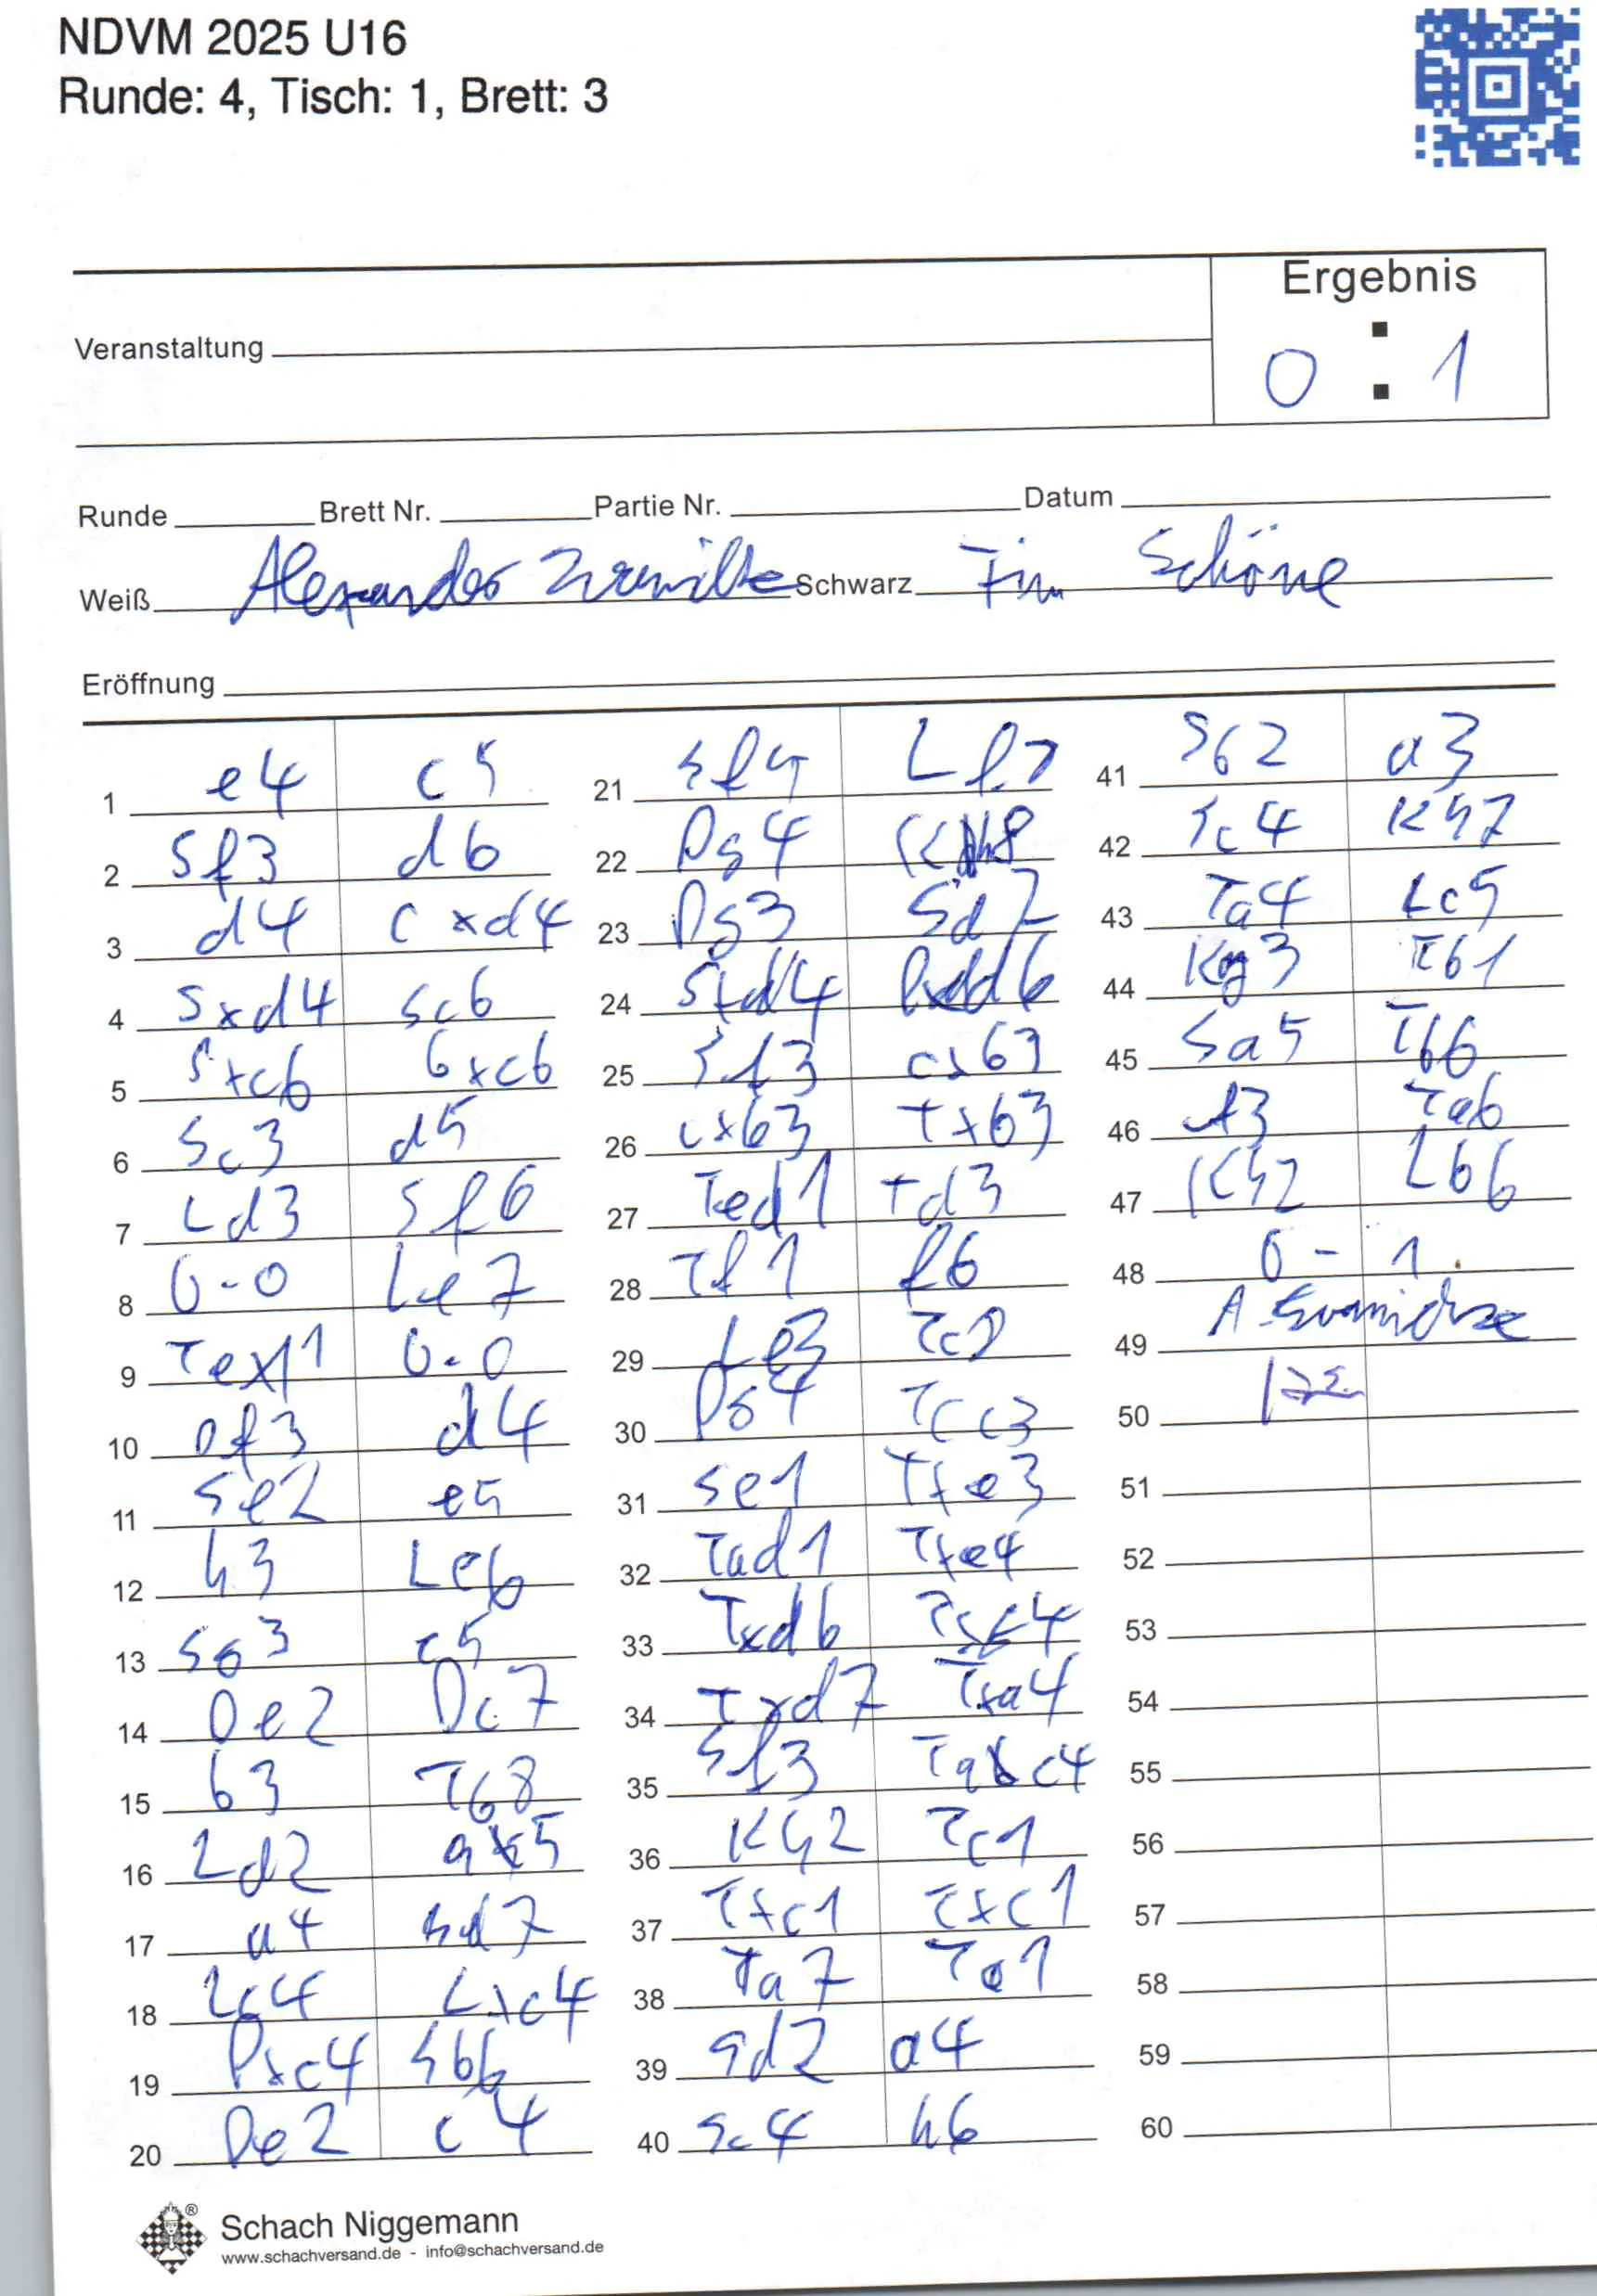 NDVM 2025 U16
Runde: 4, Tisch: 1, Brett: 3
Ergebnis
Veranstaltung
0 : 1
Runde Brett Nr. Partie Nr. Datum
Weiß Alexander Schwarz Tim Schöne
Eröffnung
1 e4 c5
2 Sf3 d6
3 d4 cxd4
4 Sxd4 Sc6
5 Sxc6 bxc6
6 Sc3 d5
7 Ld3 Sf6
8 0-0 Le7
9 Te1 0-0
10 Df3 d4
11 Se2 e5
12 h3 Le6
13 Sg3 c5
14 De2 Dc7
15 b3 Tb8
16 Ld2 a5
17 a4 Sd7
18 Lc4 Lxc4
19 Dxc4 Sb6
20 De2 c4
21 Sf5 Lf7
22 Dg4 Kh8
23 Dg3 Sd7
24 Sxd4
25 Sf3 cxb3
26 cxb3 Txb3
27 Ted1 Td3
28 Tf1 f6
29 Le3 Tc8
30 Dg4 Tcc3
31 Se1 Txe3
32 Tad1 Txe4
33 Txd6
34 Txd7 Txa4
35 Sf3 Tac4
36 Kh2 Tc1
37 Txc1 Txc1
38 Ta7 Ta1
39 Sd2 a4
40 Sc4 h6
41 Sb2 a3
42 Sc4 Kh7
43 Ta4 Lc5
44 Kg3 Tb1
45 Sa5 Tb6
46 f3 Ta6
47 Kh2 Lb6
48 0 - 1
49
50
51
52
53
54
55
56
57
58
59
60
Schach Niggemann
www.schachversand.de - info@schachversand.de